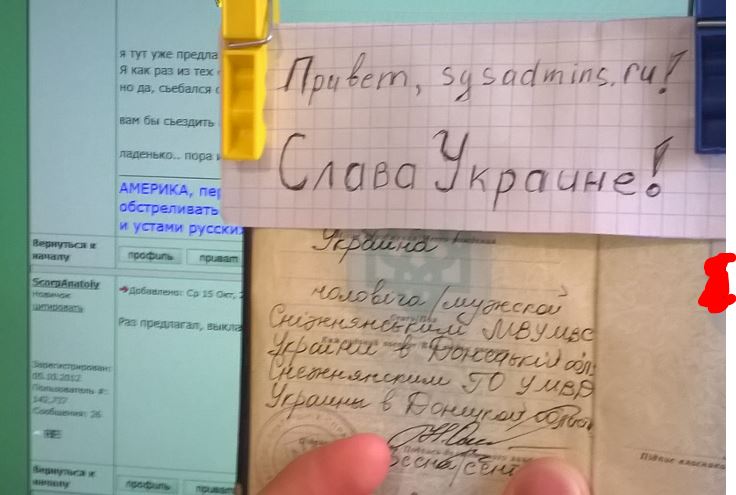 я тут уже предла
Я как раз из тех
но да, сьебался с
вам бы сьездить
ладенько.. пора и
АМЕРИКА, пер
обстреливать
и устами русских
Вернуться к
началу
профиль
приват
ScorpAnatoly
Новичок
цитировать
Добавлено: Ср 15 Окт, 2
Раз предлагал, выкла
Зарегистрирован:
05.10.2012
Пользователь #:
142,737
Сообщения: 26
Вернуться к
началу
профиль
приват
Привет, sysadmins.ru!
Слава Украине!
Украина
чоловіча/мужской
Сніжнянським МВУМВС
України в Донецькій обл.
Снежнянским ГО УМВД
Украины в Донецкой
Підпис власника